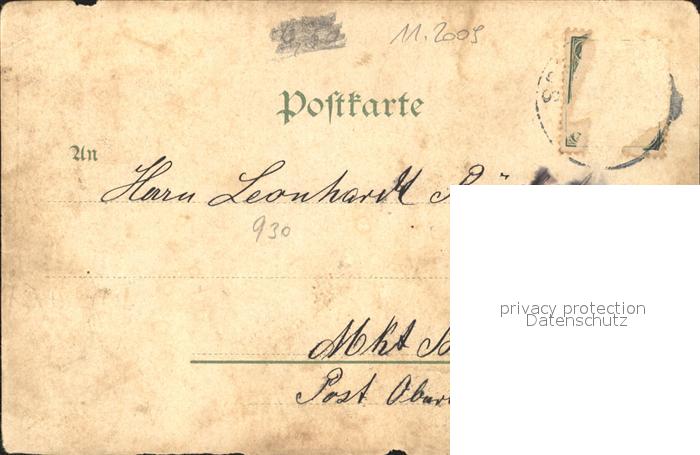 11.2009
Postkarte
An
Herrn Leonhardt
930
privacy protection
Datenschutz
Mkt
Post